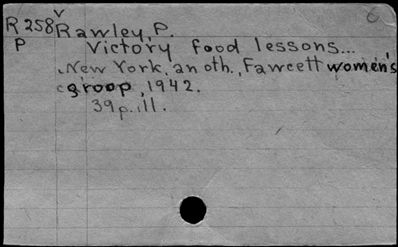 R 258 v Rawley, P.
P Victory food lessons...
New York, an oth., Fawcett women's
group, 1942.
39 p. ill.